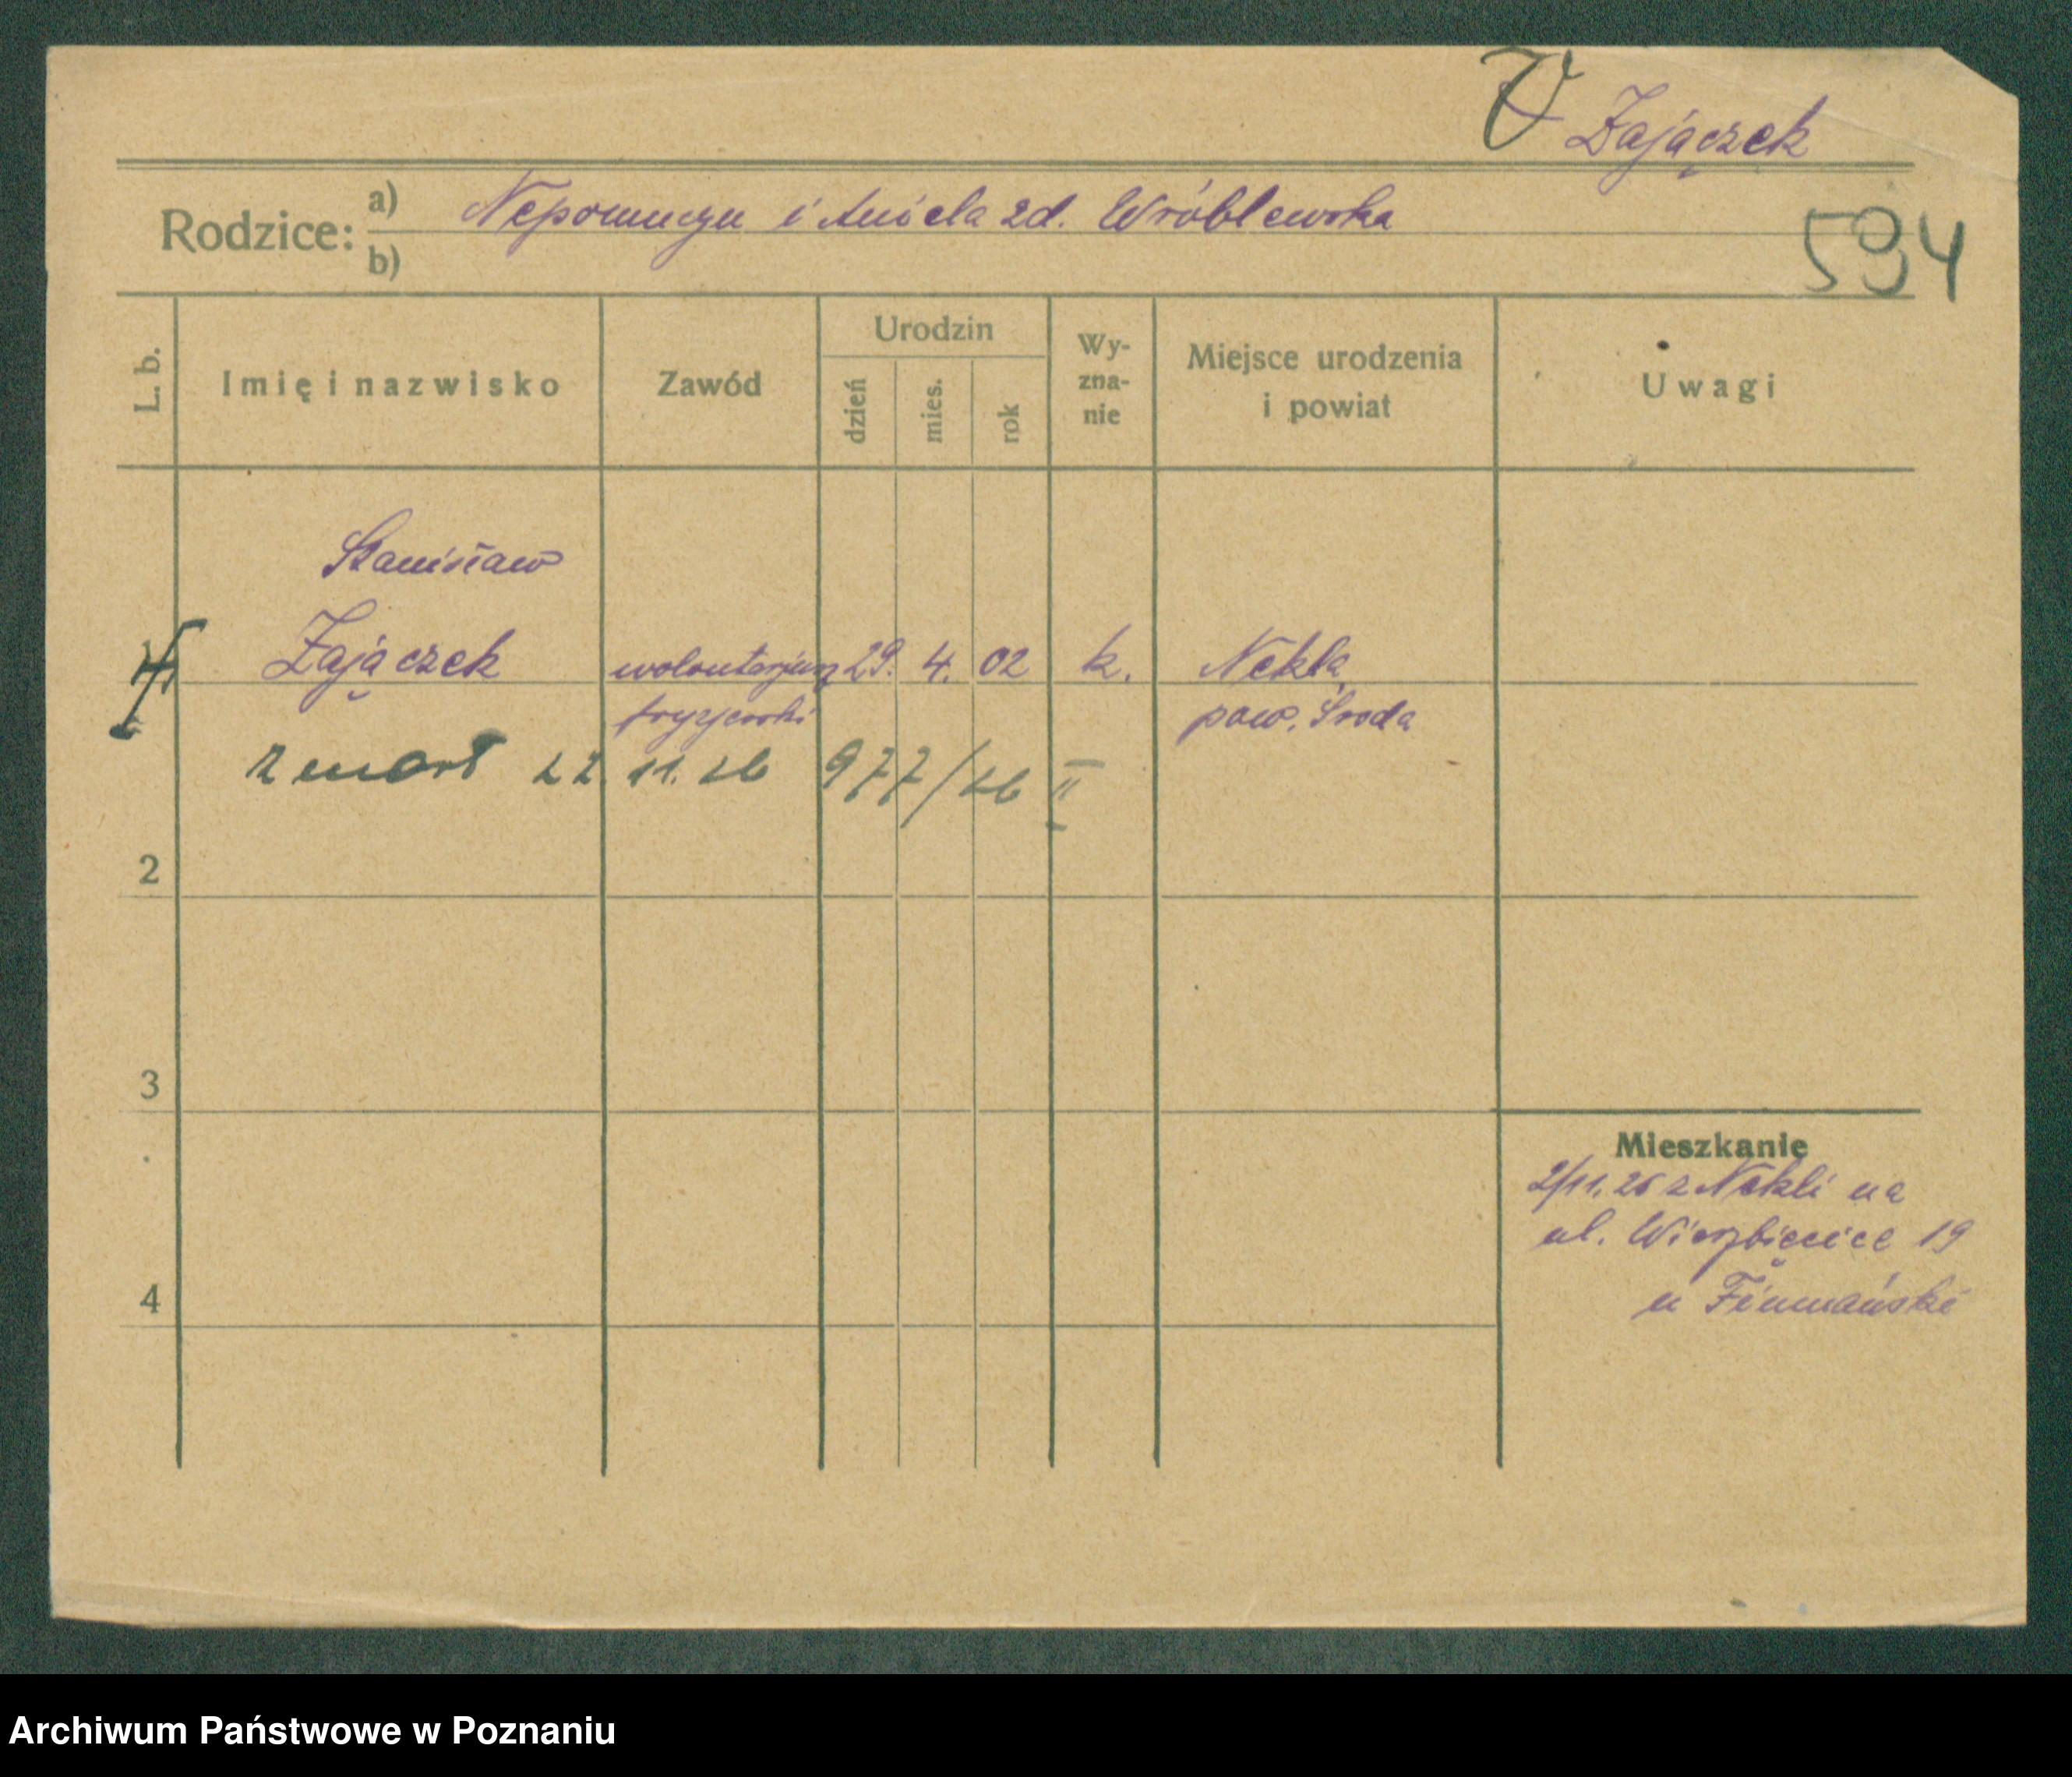 V Zajączek
Rodzice: a) Nepomucyn i Aniela zd. Wróblewska
b)
594
L. b. Imię i nazwisko Zawód Urodzin dzień mies. rok Wy-zna-nie Miejsce urodzenia i powiat Uwagi
Stanisław
Zajączek wolontarjusz 29. 4. 02 k. Nekla
fryzjerski pow. Środa
zmarł 22. 11. 26 977/26 II
2
3
Mieszkanie
2/11. 26 z Nekli na
ul. Wierzbięcice 19
4
u
Archiwum Państwowe w Poznaniu